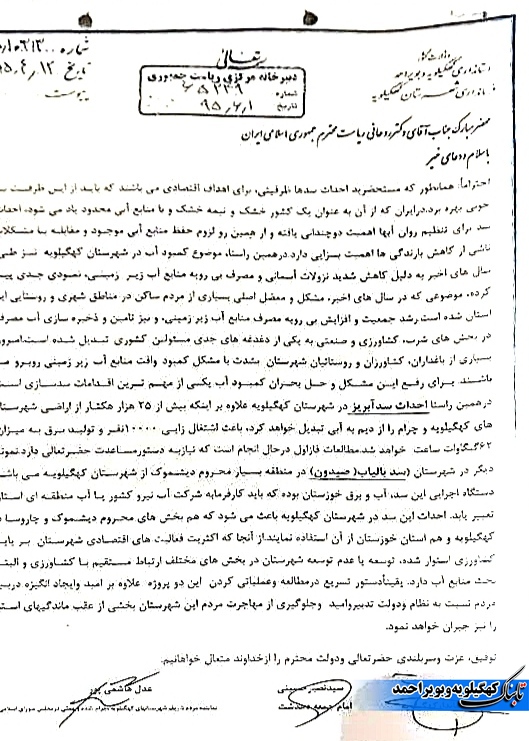 بسمه تعالی
شماره
تاریخ
پیوست
وزارت کشور
استانداری کهگیلویه و بویراحمد
فرمانداری شهرستان کهگیلویه
دبیرخانه مرکزی ریاست جمهوری
شماره ۶۵۲۳۹
تاریخ ۹۵٫۶٫۱
محضر مبارک جناب آقای دکتر روحانی ریاست محترم جمهوری اسلامی ایران
با سلام و دعای خیر
احتراماً، همانطور که مستحضرید احداث سدها ظرفیتی، برای اهداف اقتصادی می باشند که باید از ایس ظرفیت به
خوبی بهره برد.درایران که از آن به عنوان یک کشور خشک و نیمه خشک و با منابع آبی محدود یاد می شود، احداث
سد برای تنظیم روان آبها اهمیت دوچندانی یافته و از همین رو لزوم حفظ منابع آبی موجود و مقابله با مشکلات
ناشی از کاهش بارندگی ها اهمیت بسزایی دارد.درهمین راستا، موضوع کمبود آب در شهرستان کهگیلویه نیز طی
سال های اخیر به دلیل کاهش شدید نزولات آسمانی و مصرف بی رویه منابع آب زیر زمینی، نمودی جدی پیدا
کرده، موضوعی که در سال های اخیر، مشکل و معضل اصلی بسیاری از مردم ساکن در مناطق شهری و روستایی این
استان شده است رشد جمعیت و افزایش بی رویه مصرف منابع آب زیر زمینی، و نیز تامین و ذخیره سازی آب مصرفی
در بخش های شرب، کشاورزی و صنعتی به یکی از دغدغه های جدی مسئولین کشوری تبدیل شده است.امروزه
بسیاری از باغداران، کشاورزان و روستائیان شهرستان بشدت با مشکل کمبود وافت منابع آب زیر زمینی روبرو می
باشند. برای رفع این مشکل و حل بحران کمبود آب یکی از مهم ترین اقدامات سدسازی است.
درهمین راستا احداث سد آبریز در شهرستان کهگیلویه علاوه بر اینکه بیش از ۲۵ هزار هکتار از اراضی شهرستان
های کهگیلویه و چرام را از دیم به آبی تبدیل خواهد کرد، باعث اشتغال زایی ۱۰۰۰۰نفر و تولید برق به میزان
۶۲گیگاوات ساعت خواهد شد.مطالعات فازاول درحال انجام است که نیازبه دستورمساعدت حضرتعالی دارد.نمونه
دیگر در شهرستان (سد بالیاب( صیدون) در منطقه بسیار محروم دیشموک از شهرستان کهگیلویه می باشد
دستگاه اجرایی این سد، آب و برق خوزستان بوده که باید کارفرمابه شرکت آب نیرو کشور یا آب منطقه ای استان
تغییر یابد. احداث این سد در شهرستان کهگیلویه باعث می شود که هم بخش های محروم دیشموک و چاروسا در
کهگیلویه و هم استان خوزستان از آن استفاده نمایند.از آنجا که اکثریت فعالیت های اقتصادی شهرستان بر پایه
کشاورزی استوار شده، توسعه یا عدم توسعه شهرستان در بخش های مختلف ارتباط مستقیم با کشاورزی و البته
بحث منابع آب دارد. یقیناًدستور تسریع درمطالعه وعملیاتی کردن این دو پروژه علاوه بر امید وایجاد انگیزه دربین
مردم نسبت به نظام ودولت تدبیروامید وجلوگیری از مهاجرت مردم این شهرستان بخشی از عقب ماندگیهای استان
را نیز جبران خواهد نمود.
توفیق، عزت وسربلندی حضرتعالی ودولت محترم را ازخداوند متعال خواهانیم.
عدل هاشمی پور
نماینده مردم شریف شهرستانهای کهگیلویه در مجلس شورای اسلامی
سیدنصیر حسینی
امام جمعه دهدشت
تابناک کهگیلویه و بویراحمد